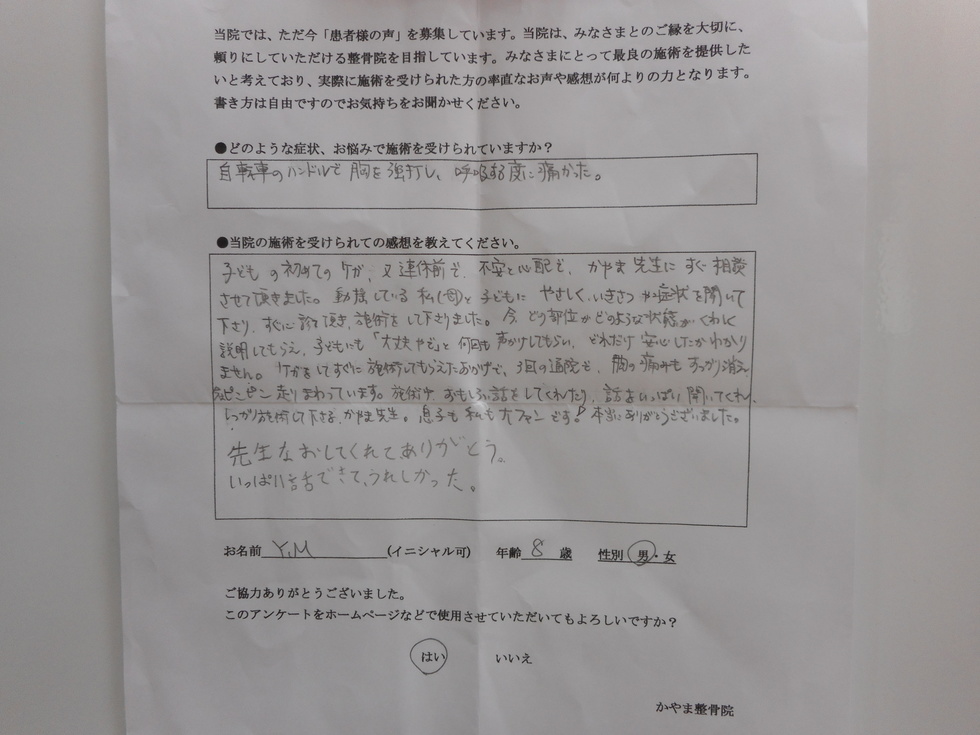 当院では、ただ今「患者様の声」を募集しています。当院は、みなさまとのご縁を大切に、
頼りにしていただける整骨院を目指しています。みなさまにとって最良の施術を提供した
いと考えており、実際に施術を受けられた方の率直なお声や感想が何よりの力となります。
書き方は自由ですのでお気持ちをお聞かせください。
●どのような症状、お悩みで施術を受けられていますか？
自転車のハンドルで 胸を強打し、呼吸する度に痛かった。
●当院の施術を受けられての感想を教えてください。
子どもの初めてのケガ、又連休前で、不安と心配で、かやま先生にすぐ相談
させて頂きました。動揺している私(母)と子どもに やさしく、いきさつや症状を聞いて
下さり、すぐに診て頂き、施術をして下さりました。今、どの部位がどのような状態か、くわしく
説明してもらえ、子どもにも「大丈夫やで」と何回も声かけしてもらい、どれだけ安心したかわかり
ません。ケガをしてすぐに施術してもらえたおかげで、3回の通院で、胸の痛みもすっかり消え
ピンピン走りまわっています。施術中、おもしろい話をしてくれたり、話をいっぱい聞いてくれ、
しっかり施術して下さる、かやま先生。息子も私も大ファンです！本当にありがとうございました。
先生なおしてくれてありがとう。
いっぱい話できて、うれしかった。
お名前 Y.M (イニシャル可) 年齢 8 歳 性別 男・女
ご協力ありがとうございました。
このアンケートをホームページなどで使用させていただいてもよろしいですか？
はい いいえ
かやま整骨院